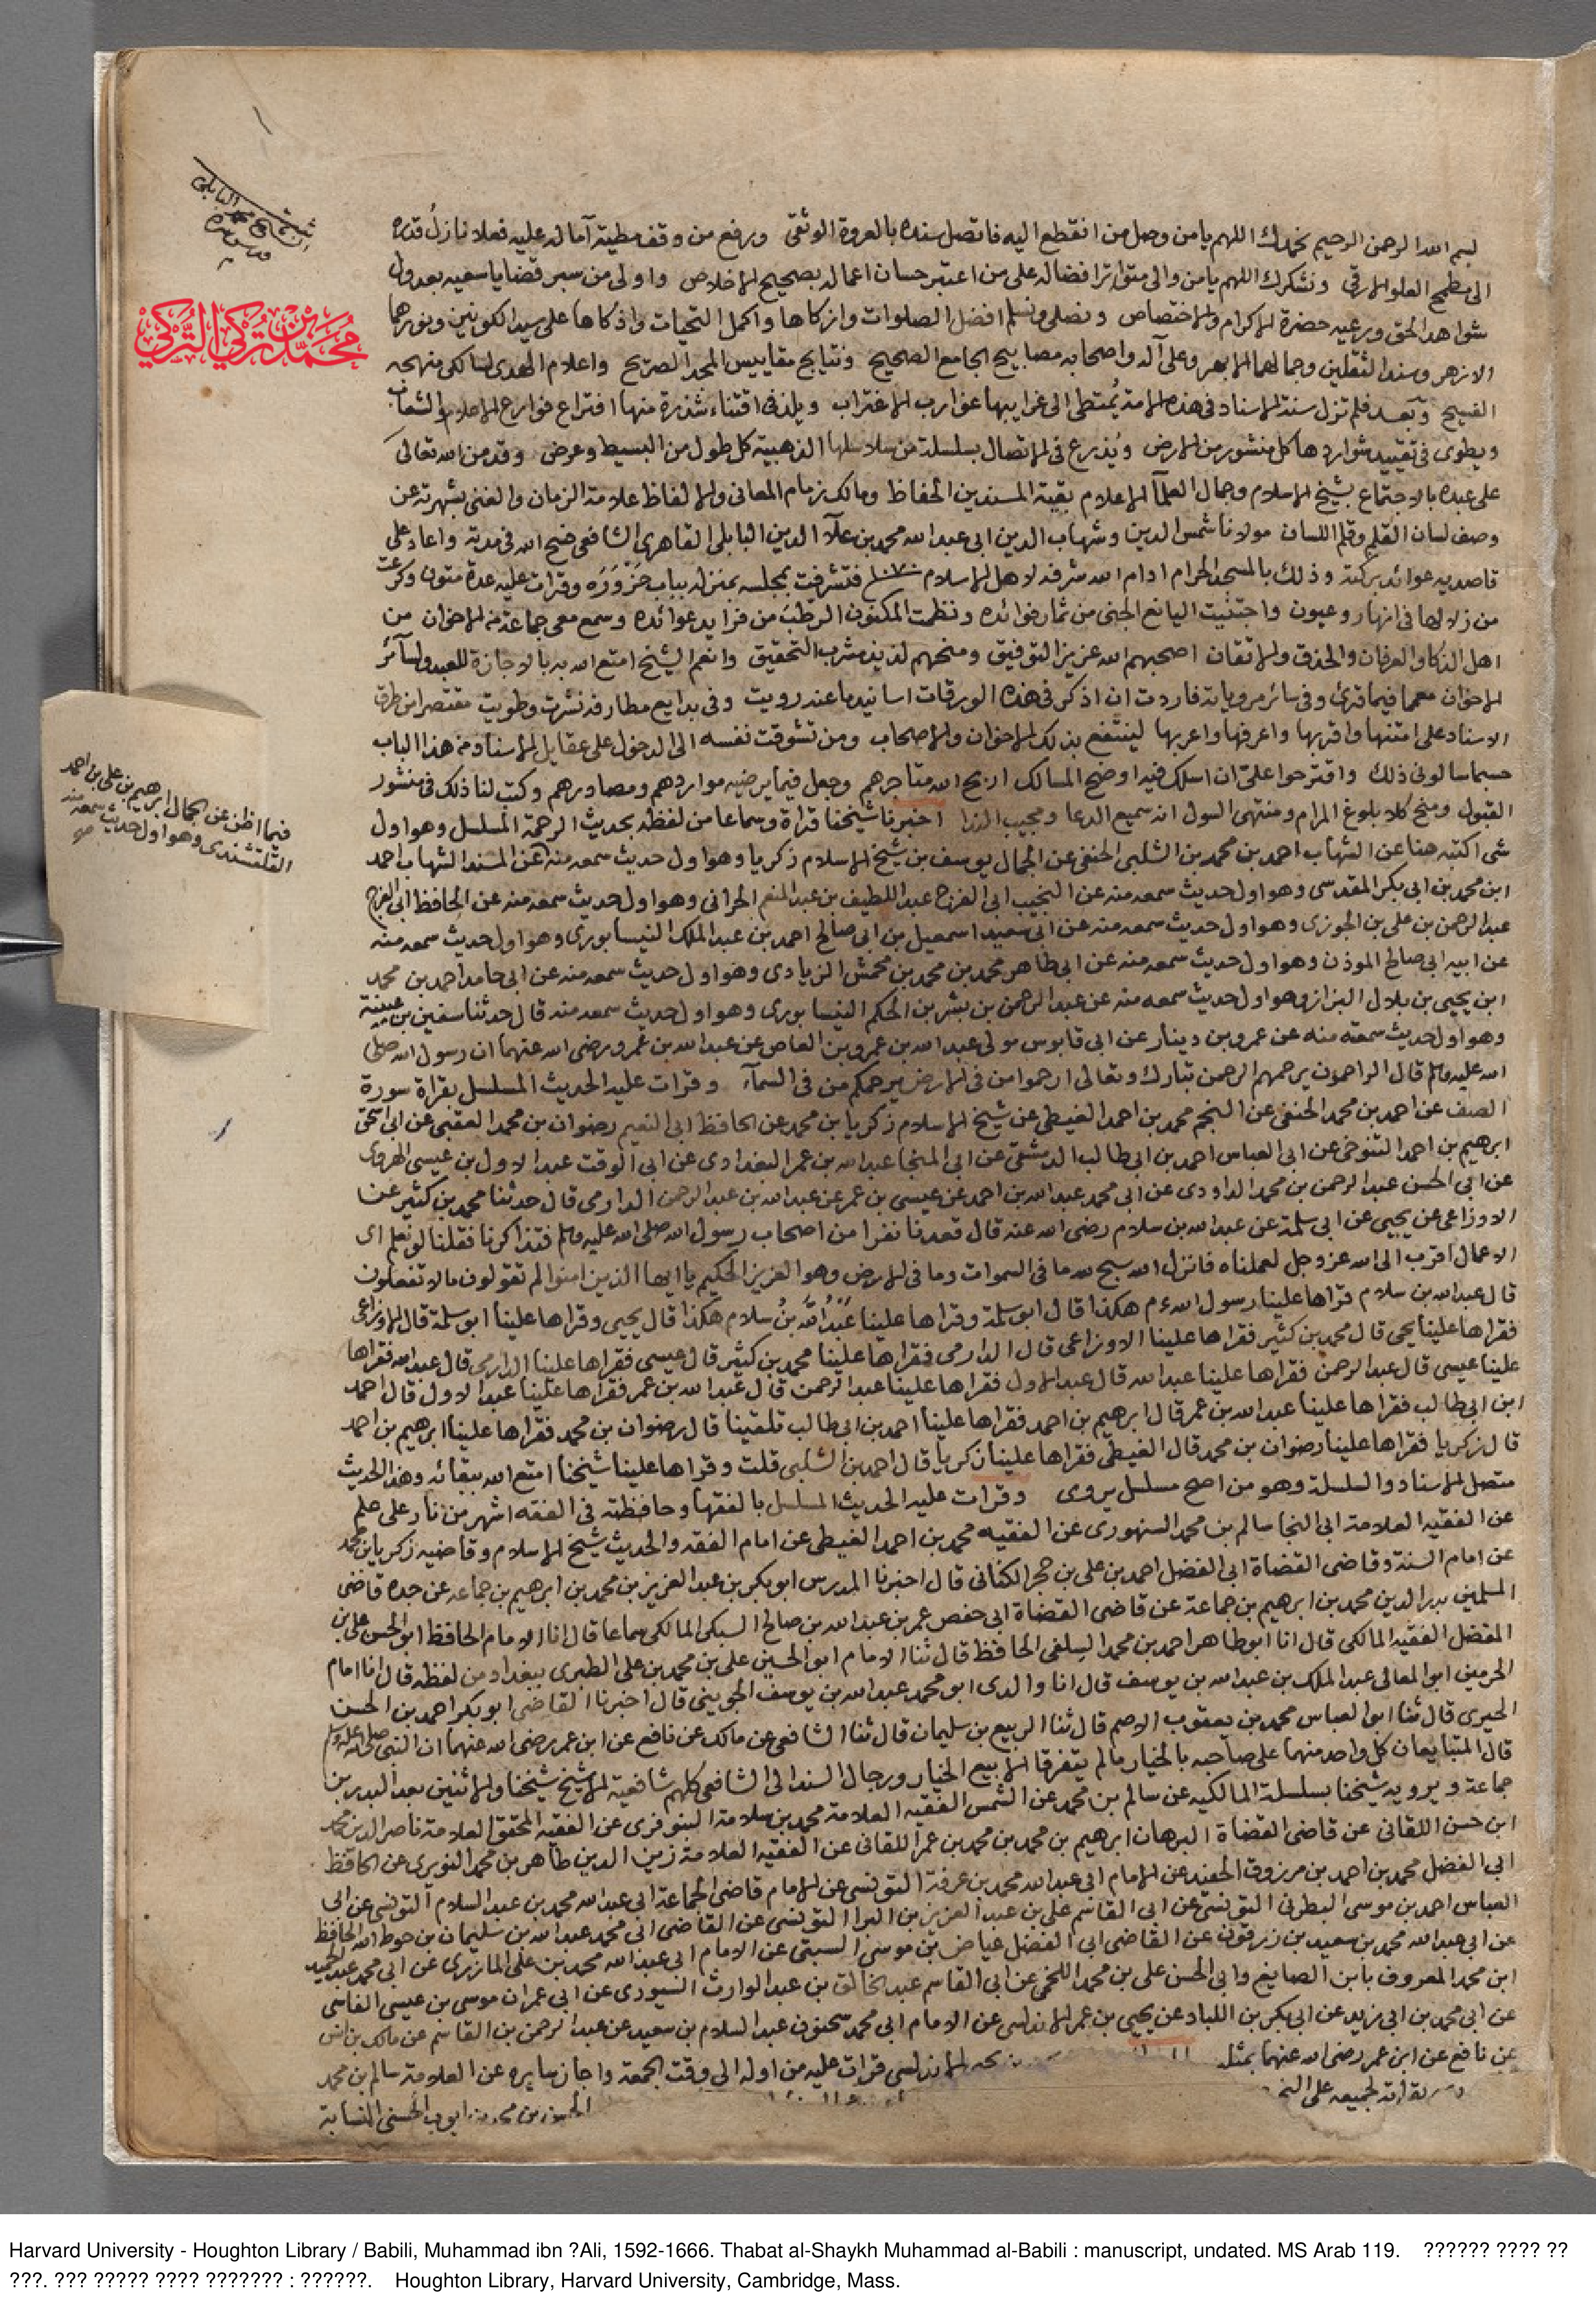 ثبت
الشيخ محمد البابلي
محمد بن تركي التركي
بسم الله الرحمن الرحيم نحمدك اللهم يا من وصل من انقطع اليه فاتصل سنده بالعروة الوثقى ورفع من وقف مطية آماله عليه فعلا نازل قدره
الى مطمح العلو الارقى ونشكرك اللهم يا من والى متواتر افضاله على من اعتبر حسان اعماله بصحيح الاخلاص واولى من سبر قضايا سعيه بعدول
شواهد الحق ورعيه حضرة الاكرام والاختصاص ونصلي ونسلم افضل الصلوات وازكاها واكمل التحيات واذكاها على سيد الكونين ونورهما
الازهر وسند الثقلين وجمالهما الابهر وعلى آله واصحابه مصابيح الجامع الصحيح ونتايج مقاييس المجد الصريح واعلام الهدى لسالكي منهجه
الفسيح وبعد فلم تزل سنة الاسناد في هذه الامة يُمتطى الى غرايبها غوارب الاغتراب ويلذ في اقتناء شذرة منها افتراع فوارع الاعلام والشعاب
ويطوى في تقييد شواردها كل منشور من الارض ويُذرع في الاتصال بسلسلة من سلاسلها الذهبية كل طول من البسيط وعرض وقد من الله تعالى
على عبده بالاجتماع بشيخ الاسلام وجمال العلمآ الاعلام بقية المسندين الحفاظ ومالك زمام المعاني والالفاظ علامة الزمان والغني بشهرته عن
وصف لسان القلم وقلم اللسان مولانا شمس الدين وشهاب الدين ابي عبد الله محمد بن علآ الدين البابلي القاهري الشافعي فسح الله في مدته واعاد على
قاصديه عوائد بركته وذلك بالمسجد الحرام ادام الله شرفه لاهل الاسلام ١٠٧٠ فتشرفت بمجلسه بمنزله بباب حَزْوَرَه وقرات عليه عدة متون وكرعت
من زلالها في انهار وعيون واجتنيت اليانع الجني من ثمار فوائده ونظمت المكنون الرطب من فرايد عوائده وسمع معي جماعة من الاخوان من
اهل الذكا والعرفان والحذق والاتقان اصحبهم الله عزيز التوفيق ومنحهم لذيذ مشرب التحقيق وانعم الشيخ امتع الله به بالاجازة للعبد ولسآئر
الاخوان معما فيما قرئ وفي سائر مروياته فاردت ان اذكر في هذه الورقات اسانيد ما عنه رويت وفي بدايع مطارفه نشرت وطويت مقتصرا من طرق
الاسناد على امتنها واقربها واعرفها واعربها لينتفع بذلك الاخوان والاصحاب ومن تشوقت نفسه الى الدخول على عقايل الاسناد من هذا الباب
حسبما سالوني ذلك واقترحوا علىّ ان اسلك فيه اوضح المسالك اربح الله متاجرهم وجعل فيما يرضيه مواردهم ومصادرهم وكتب لنا ذلك في منشور
القبول ومنح كلا بلوغ المرام ومنتهى السول انه سميع الدعا ومجيب الندا اخبرنا شيخنا قراة وسماعا من لفظه بحديث الرحمة المسلسل وهو اول
شي اكتبه هنا عن الشهاب احمد بن محمد بن الشلبي الحنفي عن الجمال يوسف بن شيخ الاسلام زكريا وهو اول حديث سمعه منه عن المسند الشهاب احمد
فيما اظن عن الجمال ابرهيم بن علي بن احمد
القلقشندي وهو اول حديث سمعه منه
ابن محمد بن ابي بكر المقدسي وهو اول حديث سمعه منه عن النجيب ابي الفرج عبد اللطيف بن عبد المنعم الحراني وهو اول حديث سمعه منه عن الحافظ ابي الفرج
عبد الرحمن بن علي بن الجوزي وهو اول حديث سمعه منه عن ابي سعيد اسمعيل بن ابي صالح احمد بن عبد الملك النيسابوري وهو اول حديث سمعه منه
عن ابيه ابي صالح الموذن وهو اول حديث سمعه منه عن ابي طاهر محمد بن محمد بن محمش الزيادي وهو اول حديث سمعه منه عن ابي حامد احمد بن محمد
ابن يحيى بن بلال البزاز وهو اول حديث سمعه منه عن عبد الرحمن بن بشر بن الحكم النيسابوري وهو اول حديث سمعه منه قال حدثنا سفين بن عيينة
وهو اول حديث سمعته منه عن عمرو بن دينار عن ابي قابوس مولى عبد الله بن عمرو بن العاص عن عبد الله بن عمرو رضي الله عنهما ان رسول الله صلى
الله عليه وسلم قال الراحمون يرحمهم الرحمن تبارك وتعالى ارحموا من في الارض يرحمكم من في السمآء وقرات عليه الحديث المسلسل بقراة سورة
الصف عن احمد بن محمد الحنفي عن النجم محمد بن احمد الغيطي عن شيخ الاسلام زكريا بن محمد عن الحافظ ابي النعيم رضوان بن محمد العقبي عن ابي اسحق
ابرهيم بن احمد التنوخي عن ابي العباس احمد بن ابي طالب الدمشقي عن ابي المنجا عبد الله بن عمر البغدادي عن ابي الوقت عبد الاول بن عيسى الهروي
عن ابي الحسن عبد الرحمن بن محمد الداودي عن ابي محمد عبد الله بن احمد عن عيسى بن عمر عن عبد الله بن عبد الرحمن الدارمي قال حدثنا محمد بن كثير عن
الاوزاعي عن يحيى عن ابي سلمة عن عبد الله بن سلام رضي الله عنه قال قعدنا نفرا من اصحاب رسول الله صلى الله عليه وسلم فتذاكرنا فقلنا لو نعلم اى
الاعمال اقرب الى الله عز وجل لعملناه فانزل الله سبح لله ما في السموات وما في الارض وهو العزيز الحكيم يا ايها الذين امنوا لم تقولون ما لا تفعلون
قال عبد الله بن سلام قراها علينا رسول الله ءم هكذا قال ابو سلمة وقراها علينا عَبْدُ اللهِ بنُ سلام هكذا قال يحيى وقراها علينا ابو سلمة قال الاوزاعي
فقراها علينا يحيى قال محمد بن كثير فقراها علينا الاوزاعي قال الدارمي فقراها علينا محمد بن كثير قال عيسى فقراها علينا الدارمي قال عبد الله فقراها
علينا عيسى قال عبد الرحمن فقراها علينا عبد الله قال عبد الاول فقراها علينا عبد الرحمن قال عبد الله بن عمر فقراها علينا عبد الاول قال احمد
ابن ابي طالب فقراها علينا عبد الله بن عمر قال ابرهيم بن احمد فقراها علينا احمد بن ابي طالب تلقينا قال رضوان بن محمد فقراها علينا ابرهيم بن احمد
قال زكريا فقراها علينا رضوان بن محمد قال الغيطي فقراها علينا زكريا قال احمد بن الشلبي قلت وقراها علينا شيخنا امتع الله ببقائه وهذا الحديث
متصل الاسناد والسلسلة وهو من اصح مسلسل يروى وقرات عليه الحديث المسلسل بالفقها وحافظته في الفقه اشهر من نار على علم
عن الفقيه العلامة ابي النجا سالم بن محمد السنهوري عن الفقيه محمد بن احمد الغيطي عن امام الفقه والحديث شيخ الاسلام وقاضيه زكريا بن محمد
عن امام السنة وقاضي القضاة ابي الفضل احمد بن علي بن حجر الكناني قال اخبرنا المدرس ابو بكر بن عبد العزيز بن محمد بن ابرهيم بن جماعه عن جده قاضي
المسلمين بدر الدين محمد بن ابرهيم بن جماعة عن قاضي القضاة ابي حفص عمر بن عبد الله بن صالح السبكي المالكي سماعا قال انا الامام الحافظ ابو الحسن علي بن
المفضل الفقيه المالكي قال انا ابو طاهر احمد بن محمد السلفي الحافظ قال ثنا الامام ابو الحسين علي بن محمد بن علي الطبري ببغداد من لفظه قال انا امام
الحرمين ابو المعالي عبد الملك بن عبد الله بن يوسف قال انا والدي ابو محمد عبد الله بن يوسف الجويني قال اخبرنا القاضي ابو بكر احمد بن الحسن
الحيري قال ثنا ابو العباس محمد بن يعقوب الاصم قال ثنا الربيع بن سليمان قال ثنا الشافعي عن مالك عن نافع عن ابن عمر رضي الله عنهما ان النبي صلى الله عليه وسلم
قال المتبايعان كل واحد منهما على صاحبه بالخيار ما لم يتفرقا الا بيع الخيار ورجال السند الى الشافعي كلهم شافعية الا شيخ شيخنا والاثنين بعد البدر بن
جماعة ويرويه شيخنا بسلسلة المالكيه عن سالم بن محمد عن الشمس الفقيه العلامة محمد بن سلامة البنوفري عن الفقيه المحقق العلامة ناصر الدين محمد
ابن حسن اللقاني عن قاضي القضاة البرهان ابرهيم بن محمد بن محمد بن عمر اللقاني عن الفقيه العلامة زين الدين طاهر بن محمد النويري عن الحافظ
ابي الفضل محمد بن احمد بن مرزوق الحفيد عن الامام ابي عبد الله محمد بن عرفة التونسي عن الامام قاضي الجماعة ابي عبد الله محمد بن عبد السلام التونسي عن ابي
العباس احمد بن موسى البطرني التونسي عن ابي القاسم علي بن عبد العزيز بن البرا التونسي عن القاضي ابي محمد عبد الله بن سليمان بن حوط الله الحافظ
عن ابي عبد الله محمد بن سعيد بن زرقون عن القاضي ابي الفضل عياض بن موسى السبتي عن الامام ابي عبد الله محمد بن علي المازري عن ابي محمد عبد الحميد
ابن محمد المعروف بابن الصايغ وابي الحسن علي بن محمد اللخمي عن ابي القاسم عبد الخالق بن عبد الوارث السيوري عن ابي عمران موسى بن عيسى الفاسي
عن ابي محمد بن ابي زيد عن ابي بكر بن اللباد عن يحيى بن عمر الاندلسي عن الامام ابي محمد سحنون عبد السلام بن سعيد عن عبد الرحمن بن القاسم عن مالك بن انس
عن نافع عن ابن عمر رضي الله عنهما بمثله الاندلسي قرات عليه من اوله الى وقت الجمعة واجاز سايره عن العلامة سالم بن محمد
بقراته لجميعه على النجم الحسن بن محمد بن ايوب الحسني النسابة
Harvard University - Houghton Library / Babili, Muhammad ibn ?Ali, 1592-1666. Thabat al-Shaykh Muhammad al-Babili : manuscript, undated. MS Arab 119. ?????? ???? ??
???. ??? ????? ???? ??????? : ??????. Houghton Library, Harvard University, Cambridge, Mass.